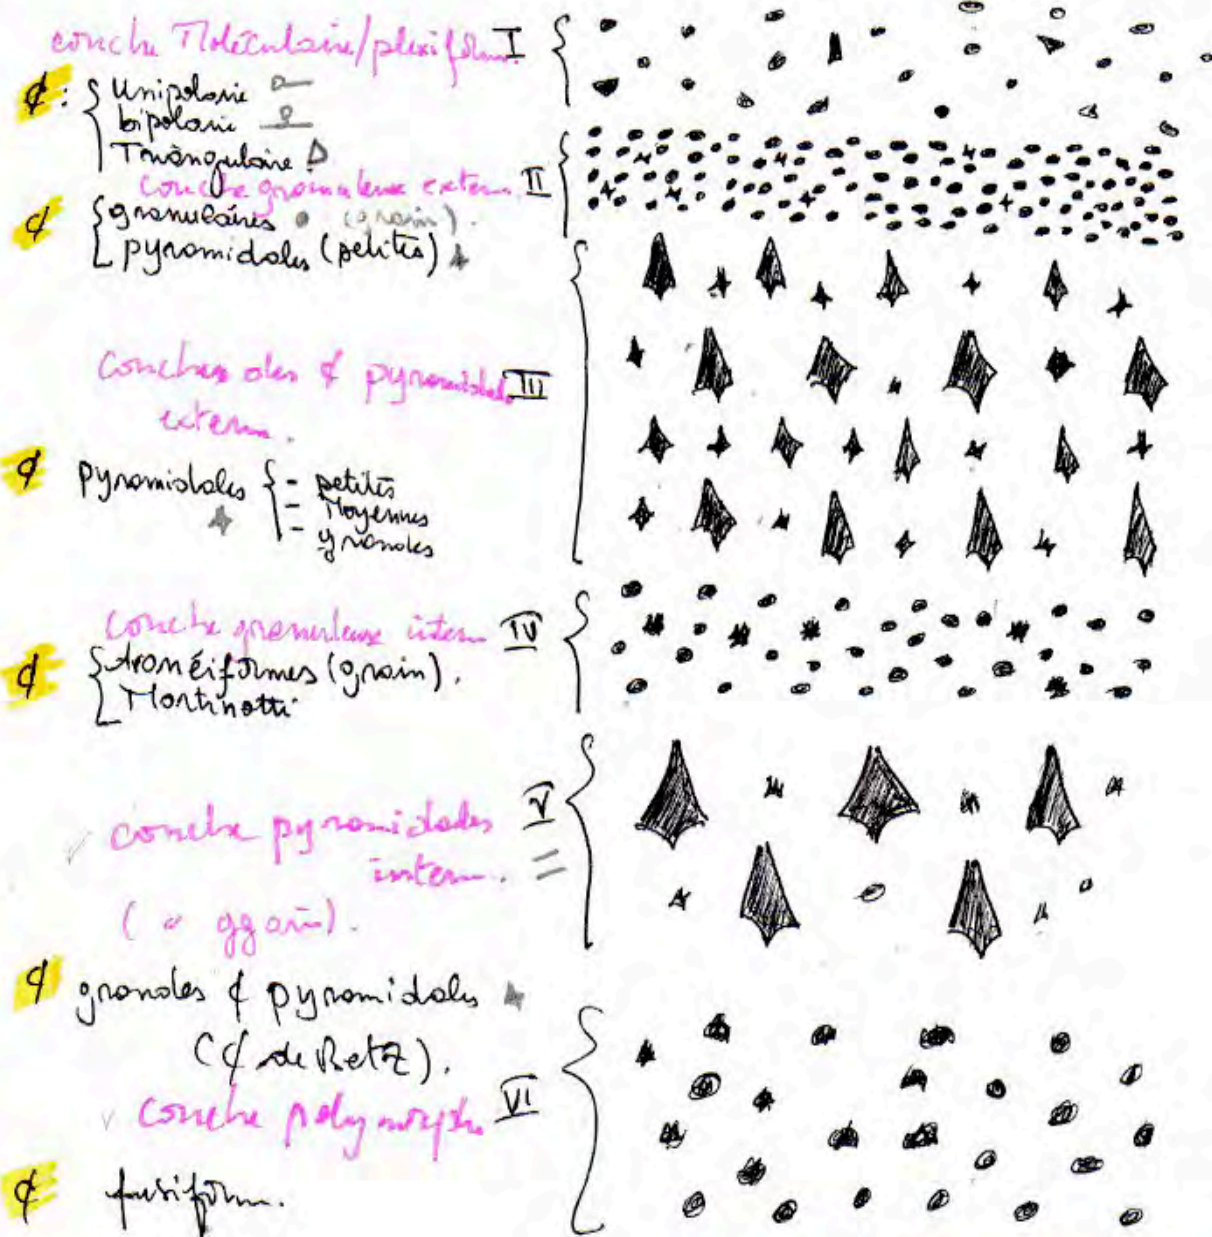 couche Moléculaire/plexiform. I
¢ : { Unipolaire
bipolaire
Triangulaire
couche granuleuse extern. II
¢ { granulaires (grain).
pyramidales (petites)
Couches des ¢ pyramidales III
extern.
¢ pyramidales { - petites
- Moyennes
- grandes
couche granuleuse intern. IV
¢ { Aranéiformes (grain).
Martinotti
couche pyramidales V
intern.
¢ grandes ¢ pyramidales
(¢ de Betz).
couche polymorph. VI
¢ fusiform.